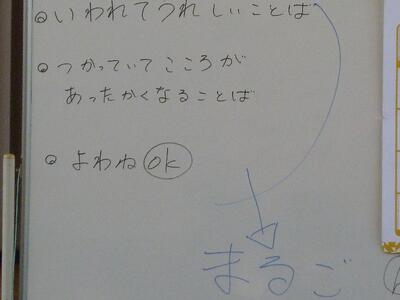 いわれてうれしいことば
つかっていてこころが
あったかくなることば
よわね ok
まるご